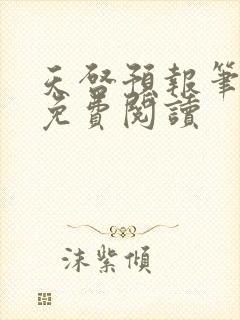 天啓預報筆
免費閱讀
沫紫傾